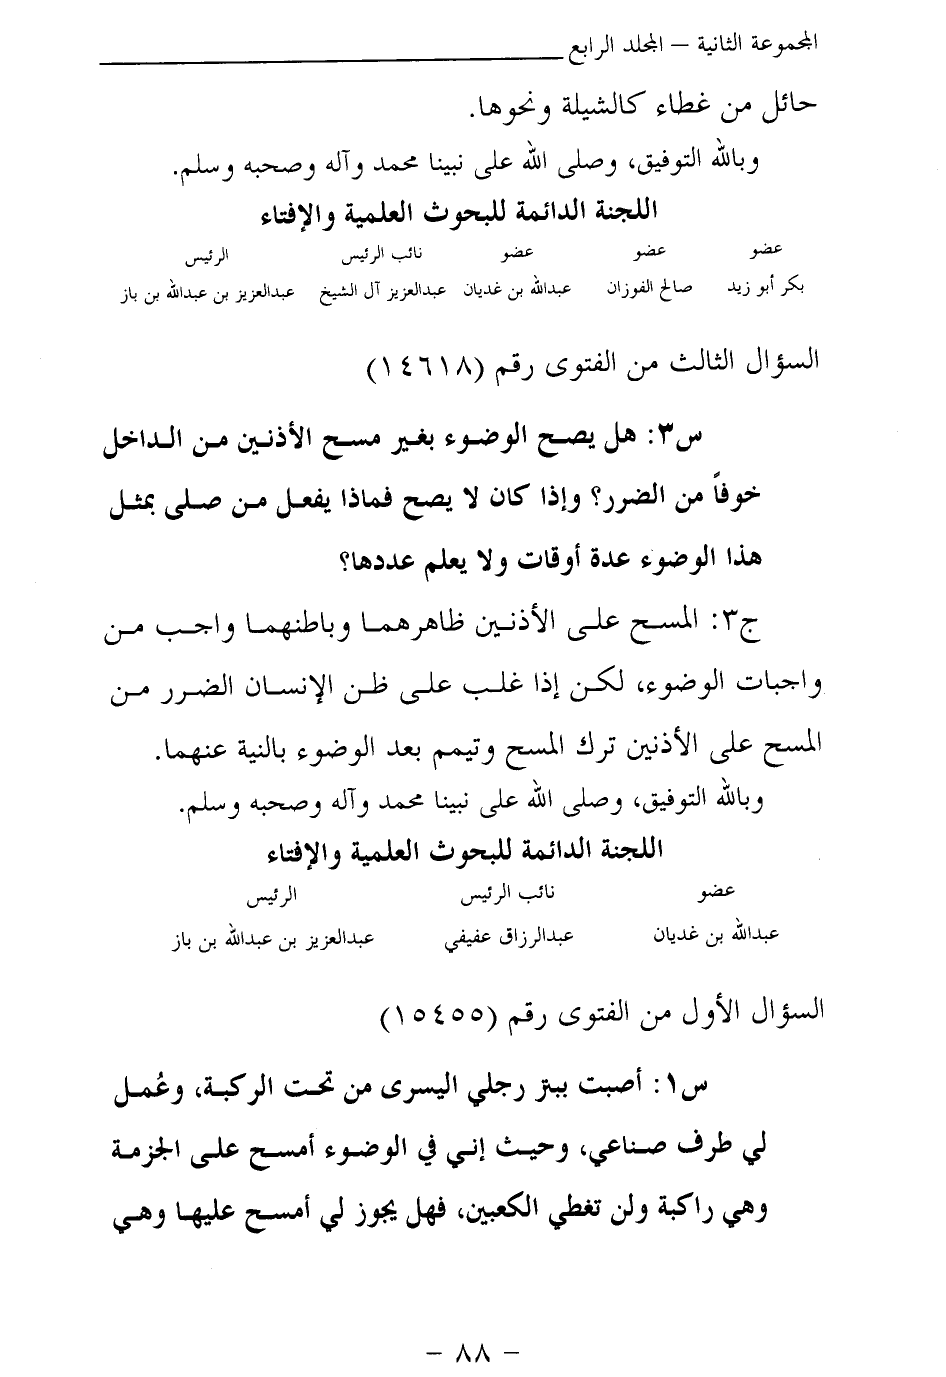 المجموعة الثانية – المجلد الرابع
حائل من غطاء كالشيلة ونحوها.
وبالله التوفيق، وصلى الله على نبينا محمد وآله وصحبه وسلم.
اللجنة الدائمة للبحوث العلمية والإفتاء
عضو عضو عضو نائب الرئيس الرئيس
بكر أبو زيد صالح الفوزان عبدالله بن غديان عبدالعزيز آل الشيخ عبدالعزيز بن عبدالله بن باز
السؤال الثالث من الفتوى رقم (١٤٦١٨)
س٣: هل يصح الوضوء بغير مسح الأذنين من الداخل
خوفاً من الضرر؟ وإذا كان لا يصح فماذا يفعل من صلى بمثل
هذا الوضوء عدة أوقات ولا يعلم عددها؟
ج٣: المسح على الأذنين ظاهرهما وباطنهما واجب من
واجبات الوضوء، لكن إذا غلب على ظن الإنسان الضرر من
المسح على الأذنين ترك المسح وتيمم بعد الوضوء بالنية عنهما.
وبالله التوفيق، وصلى الله على نبينا محمد وآله وصحبه وسلم.
اللجنة الدائمة للبحوث العلمية والإفتاء
عضو نائب الرئيس الرئيس
عبدالله بن غديان عبدالرزاق عفيفي عبدالعزيز بن عبدالله بن باز
السؤال الأول من الفتوى رقم (١٥٤٥٥)
س١: أصبت ببتر رجلي اليسرى من تحت الركبة، وعُمل
لي طرف صناعي، وحيث إني في الوضوء أمسح على الجزمة
وهي راكبة ولن تغطي الكعبين، فهل يجوز لي أمسح عليها وهي
– ٨٨ –